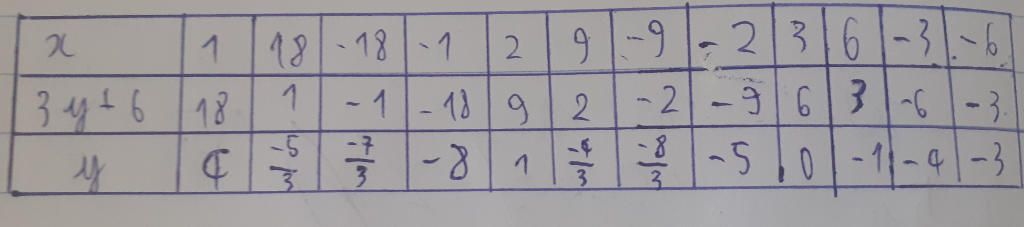 x 1 18 -18 -1 2 9 -9 -2 3 6 -3 -6
3y+6 18 1 -1 -18 9 2 -2 -9 6 3 -6 -3
y 4 -5/3 -7/3 -8 1 -4/3 -8/3 -5 0 -1 -4 -3